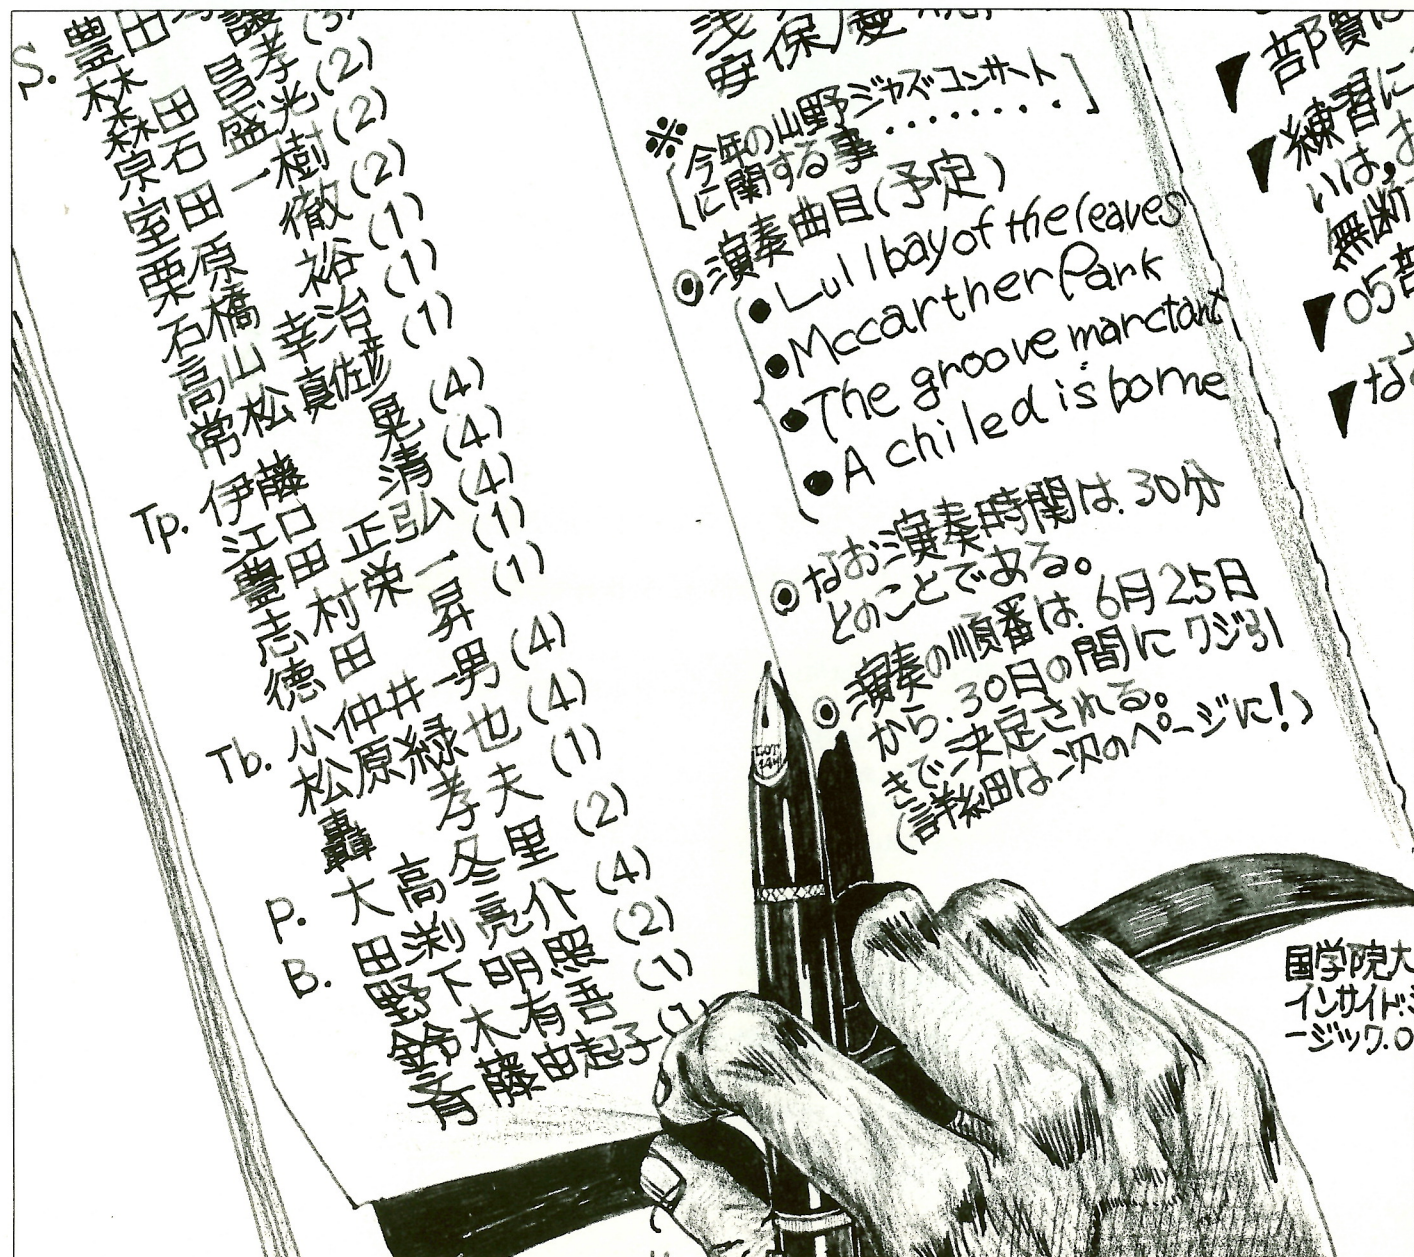 S. 豊田
林 譲
森田 昌孝 (3)
京石 盛光 (2)
室田 一樹 (2)
栗原 徹 (2)
石橋 裕 (1)
高山 幸治 (1)
常松 真佐彦 (1)
Tp. 伊藤 晃 (4)
江口 清 (4)
豊田 正弘 (4)
志村 栄一 (1)
徳田 昇 (1)
Tb. 小仲井 一男 (4)
松原 緑也 (4)
轟 孝夫 (1)
P. 大高 冬里 (2)
B. 田渕 亮介 (4)
野下 明照 (2)
鈴木 有吾 (1)
斉藤 由起子 (1)
浅
安保
※[今年の山野ジャズ・コンサート
に関する事・・・・・・・・]
◉演奏曲目(予定)
●Lullbay of the leaves
●Mccarther Park
●The groove marctant
●A chiled is borne
◉なお演奏時間は、30分
とのことである。
◉演奏の順番は、6月25日
から、30日の間にクジ引
きで決定される。
(詳細は次のページに!)
LOT
144
▼部費は
▼練習に
いは、お
無断
▼05部
▼なお
国学院大
インサイド・ミ
ージック.O